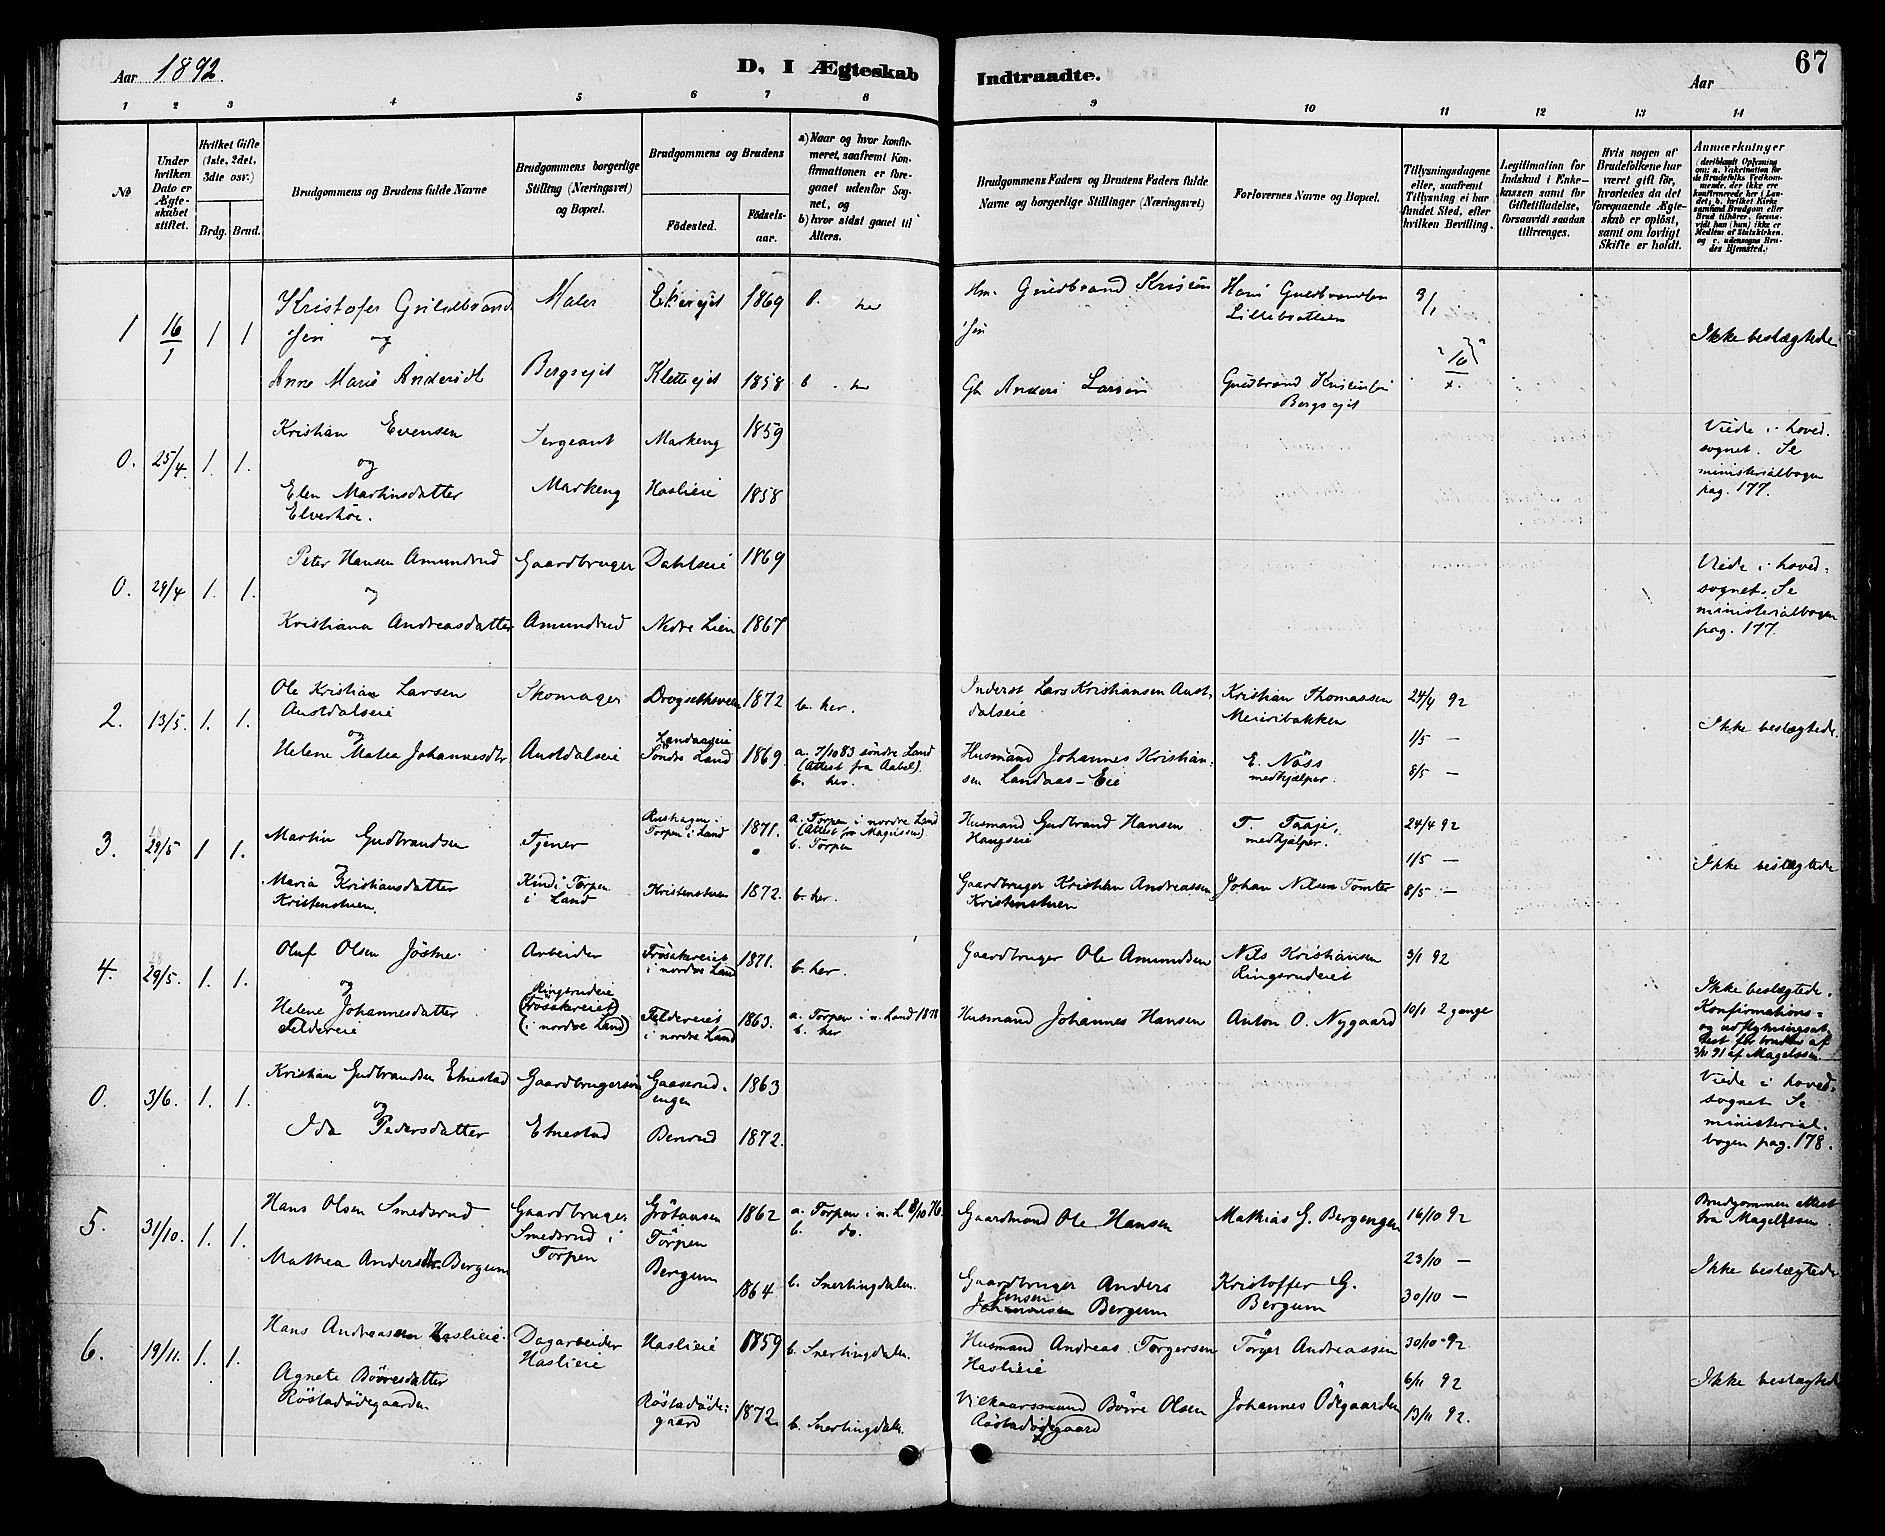 Aar 1892.
D, I Ægteskab Indtraadte.
Aar
67
1 2 3 4 5 6 7 8 9 10 11 12 13 14
No
Under hvilken Dato er Ægteskabet stiftet.
Hvilket Gifte (1ste, 2det, 3die osv.)
Brdg. Brud.
Brudgommens og Brudens fulde Navne
Brudgommens borgerlige Stilling (Næringsvei) og Bopæl.
Brudgommens og Brudens
Fødested.
Fødselsaar.
a) Naar og hvor konfirmeret, saafremt Konfirmationen er foregaaet udenfor Sognet, og
b) hvor sidst gaaet til Alters.
Brudgommens Faders og Brudens Faders fulde Navne og borgerlige Stillinger (Næringsvei)
Forlovernes Navne og Bopæl.
Tillysningsdagene eller, saafremt Tillysning ei har fundet Sted, efter hvilken Bevilling.
Legitimation for Indskud i Enkekassen samt for Giftetilladelse, forsaavidt saadan tiltrænges.
Hvis nogen af Brudefolkene har været gift før, hvorledes da det foregaaende Ægteskab er opløst, samt om lovligt Skifte er holdt.
Anmærkninger
1 16/1 1 1
Kristofer Guldbrand-
sen og
Maler
Ekereiet 1869
her
Hm. Gudbrand
Hans Gudbrandsen
9/1
Ikke beslægtede
Anne Marie Andersdt
Bergseiet
Kletteiet 1858 b. her
Anders Larsen
Gudbrand Kristensen
Bergseiet
0. 25/4. 1. 1.
Kristian Evensen
og
Elen Martinsdatter
Elverhöi.
Sergeant
Markeng
Markeng 1859
Haslieie 1858
Viede i hoved-
sognet. Se
ministerialbogen
pag. 177.
0. 29/4 1. 1.
Peter Hansen Amundrud
og
Kristiana Andreasdatter
Gaardbruger
Amundrud
Dahlseie 1869
Nedre Lien 1867
Viede i hoved-
sognet. Se
ministerialbogen
pag. 177.
2. 13/5. 1. 1.
Ole Kristian Larsen
Austdalseie
og
Helene Matea Johannesdtr
Skomager
Austdalseie
Drogsethsveen 1872 b. her.
Landaaseie
Söndre Land 1869. a. 7/10 83 söndre Land
(Attest fra Aabel).
b. her.
Inderst Lars Kristiansen Aust-
dalseie
Husmand Johannes Kristian-
sen Landaas-Eie
Kristian Thomassen
Meieribakken
E. Næss
medhjælper.
24/4 92
1/5 —
8/5 —
Ikke beslægtede.
3. 29/5 1 1.
Martin Gudbrandsen
og
Maria Kristiansdatter
Kristenstuen.
Tjener
Kind i Torpen
i Land
Rushagen i
Torpen i Land 1871.
Kristenstuen 1872.
a. Torpen i nordre Land
(Attest fra Magelssen)
b. Torpen
b. her.
Husmand Gudbrand Hansen
Haugseie
Gaardbruger Kristian Andreassen
Kristenstuen
T. Faaje,
medhjælper.
Johan Nilsen Tomter
24/4 92
1/5 —
8/5 —
Ikke beslægtede
4. 29/5. 1. 1.
Oluf Olsen Jöstne.
og
Helene Johannesdatter
Feldereie
Arbeider
Ringerudeie
(Frösakereiet)
(i nordre Land)
Frösakereiet
i nordre Land 1871.
Feldereiet
i nordre Land 1863.
b. her.
a. Torpen i n. Land 1878
b. her
Gaardbruger Ole Amundsen
Husmand Johannes Hansen
Nils Kristiansen
Ringerudeiet
Anton O. Nygaard
3/1 92
10/1 2 gange
Ikke beslægtede.
Konfirmations-
og udflytningsat-
test for bruden af
3/11 91 af Magelssen.
0. 3/6. 1. 1.
Kristian Gudbrandsen Etnestad
og
Ida Pedersdatter
Gaardbrugersön
Etnestad
Gaaserud-
engen 1863
Berrud 1872.
Viede i hoved-
sognet Se
ministerial-
bogen pag. 178.
5. 31/10. 1. 1.
Hans Olsen Smedsrud
Mathea Andersdtr. Bergum
Gaardbruger
Smedsrud i
Torpen
Torpen
1862
Bergum
1864
a. Torpen i n. L. 8/10 76.
b. do.
b. Snertingdalen.
Gaardmand Ole Hansen
Gaardbruger Anders
Jensen
Bergum
Mathias G. Bergengen
Kristoffer G.
Bergum
16/10 92
23/10 —
30/10 —
Brudgommen attest
fra Magelssen.
Ikke beslægtede
6. 19/11. 1. 1.
Hans Andreassen Haslieie.
Agnete Börresdatter
Röstadödegaarden
Dagarbeider
Haslieie
Haslieie 1859
Röstadöde-
gaard 1872.
b. Snertingdalen.
b. Snertingdalen.
Husmand Andreas Torgersen
Haslieie
Vilkaarsmand Börre Olsen
Röstadödegaard
Törger Andreassen
Johannes Ödegaarden
30/10 92
6/11 92
13/11 92.
Ikke beslægtede